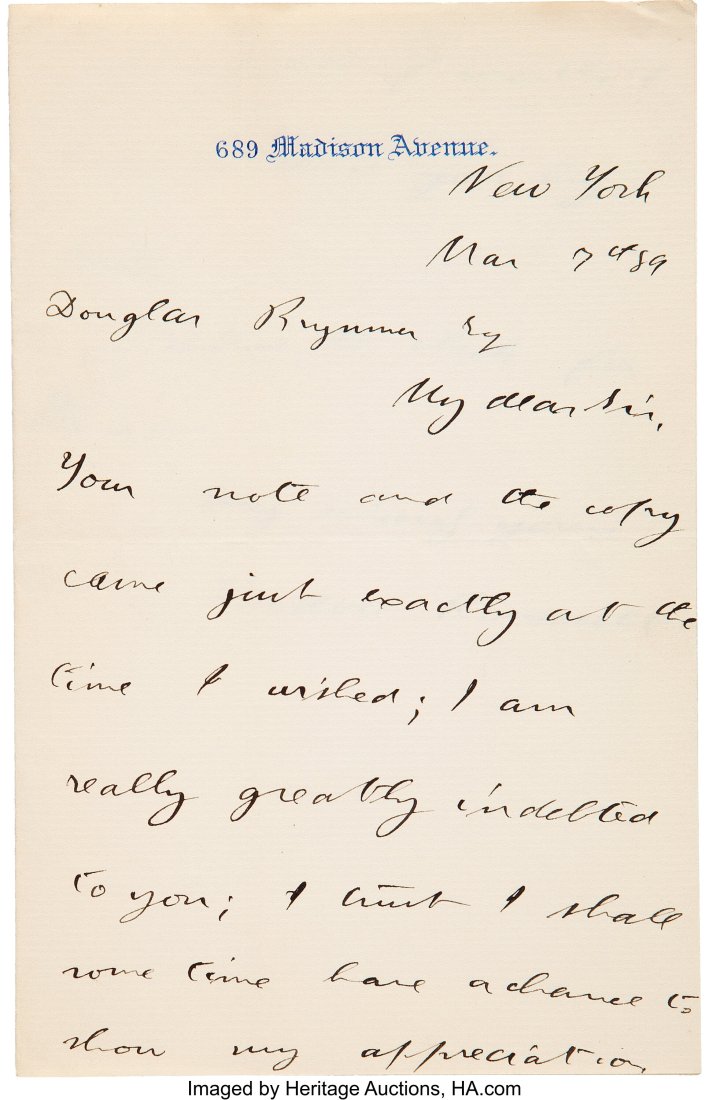 689 Madison Avenue.
New York
Mar 7th 89
Douglas Brymner Esq
My dear Sir,
Your note and the copy
came just exactly at the
time I wished; I am
really greatly indebted
to you; I trust I shall
some time have a chance to
show my appreciation
Imaged by Heritage Auctions, HA.com